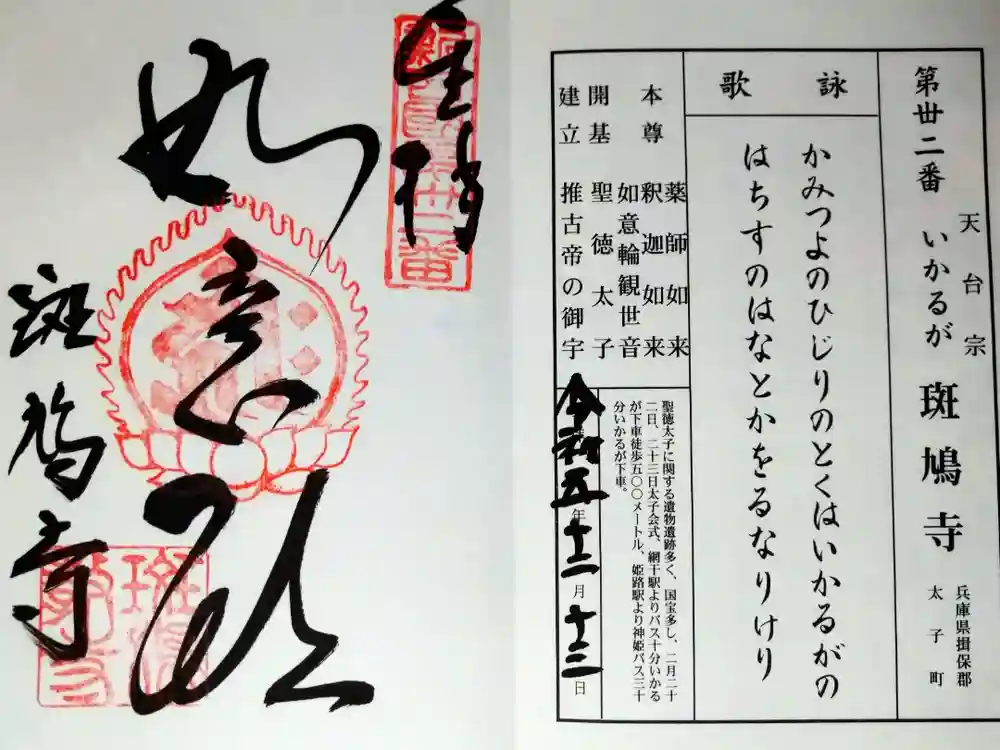 第丗二番
天台宗
いかるが 斑鳩寺
兵庫県揖保郡
太子町
詠歌
かみつよのひじりのとくはいかるがの
はちすのはなとかをるなりけり
本尊
薬師如来
釈迦如来
如意輪観世音
開基 聖徳太子
建立 推古帝の御宇
聖徳太子に関する遺物遺跡多く、国宝多し、二月二十
二日、二十三日太子会式、網干駅よりバス十分いかる
が下車徒歩五〇〇メートル、姫路駅より神姫バス三十
分いかるが下車。
令和五年十二月十三日
奉拝
如意殿
斑鳩寺